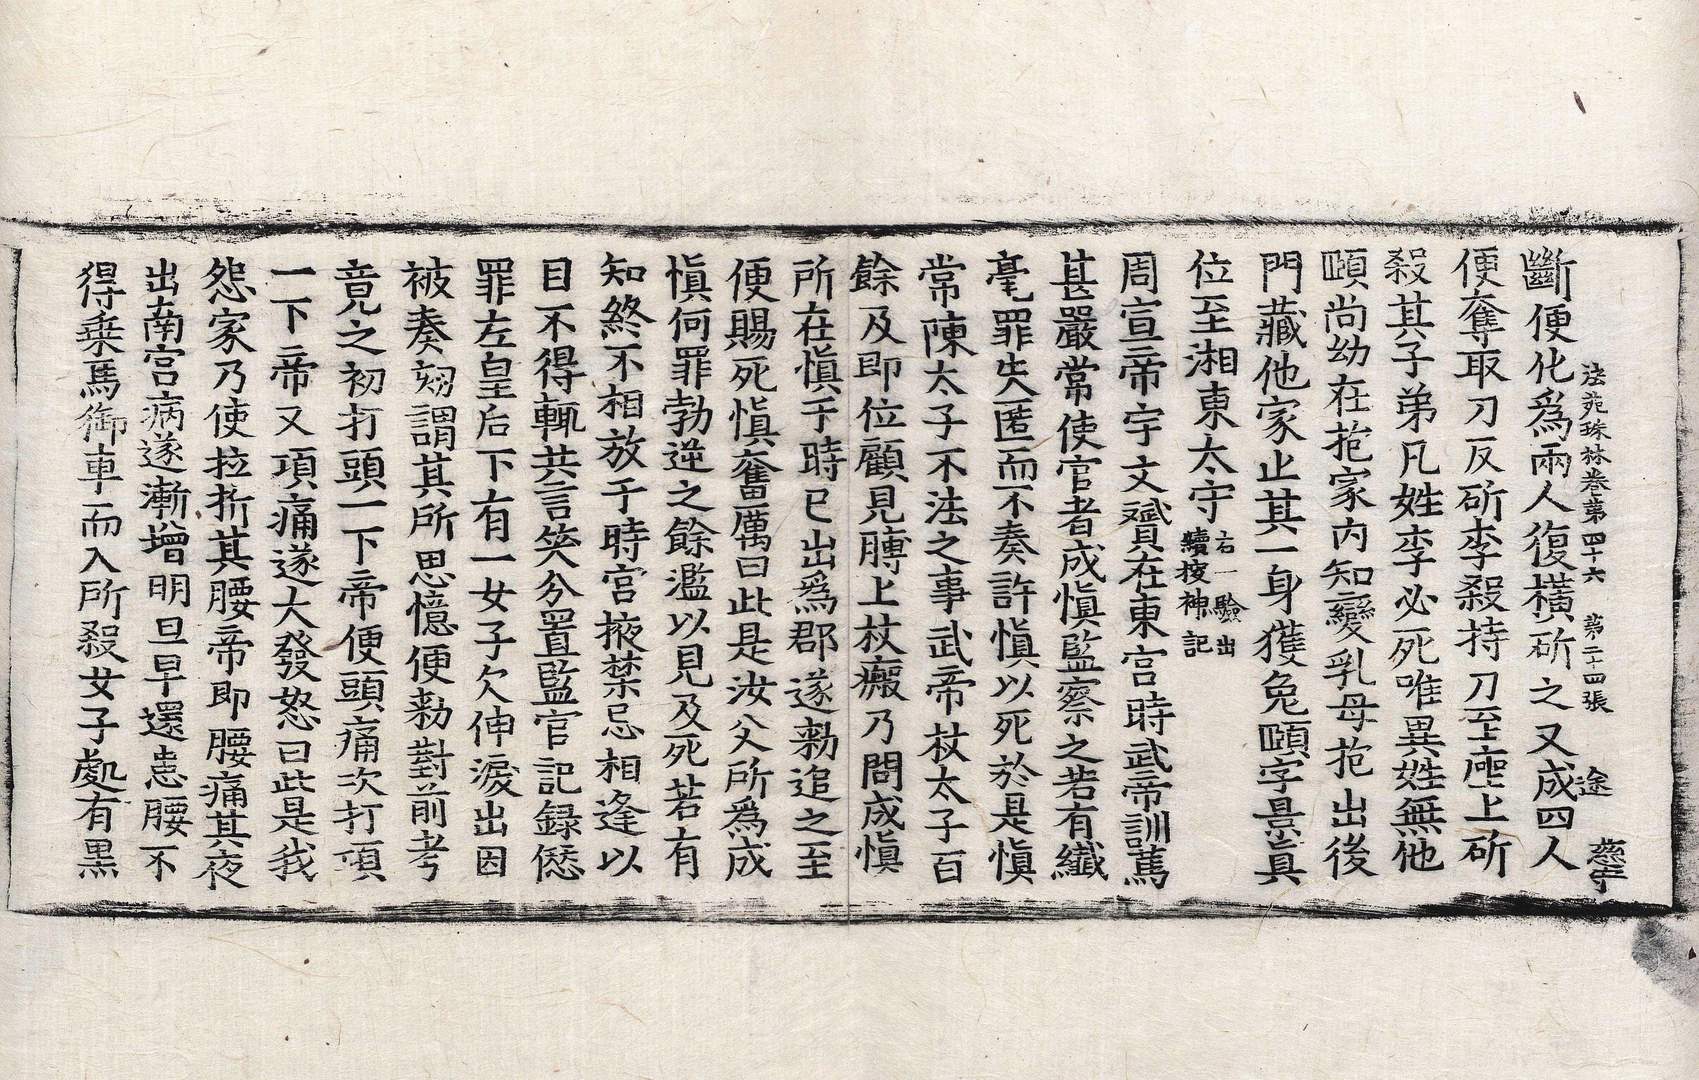 法苑珠林卷第四十六 第二十四張 途
斷便化爲兩人復橫斫之又成四人
便奪取刀反斫李殺持刀至座上斫
殺其子弟凡姓李必死唯異姓無他
頤尚幼在抱家內知變乳母抱出後
門藏他家止其一身獲免頤字景真
位至湘東太守 右一驗出續搜神記
周宣帝宇文贇在東宮時武帝訓篤
甚嚴常使宦者成愼監察之若有纖
毫罪失匿而不奏許愼以死於是愼
常陳太子不法之事武帝杖太子百
餘及即位顧見髆上杖瘢乃問成愼
所在愼于時已出爲郡遂勑追之至
便賜死愼奮厲曰此是汝父所爲成
愼何罪勃逆之餘濫以見及死若有
知終不相放于時宮掖禁忌相逢以
目不得輒共言笑分置監官記錄愆
罪左皇后下有一女子欠伸淚出因
被奏劾謂其所思憶便勑對前考
竟見之初打頭一下帝便頭痛次打項
一下帝又項痛遂大發怒曰此是我
怨家乃使拉折其腰帝即腰痛其夜
出南宮病遂漸增明旦早還患腰不
得乘馬御車而入所殺女子處有黑